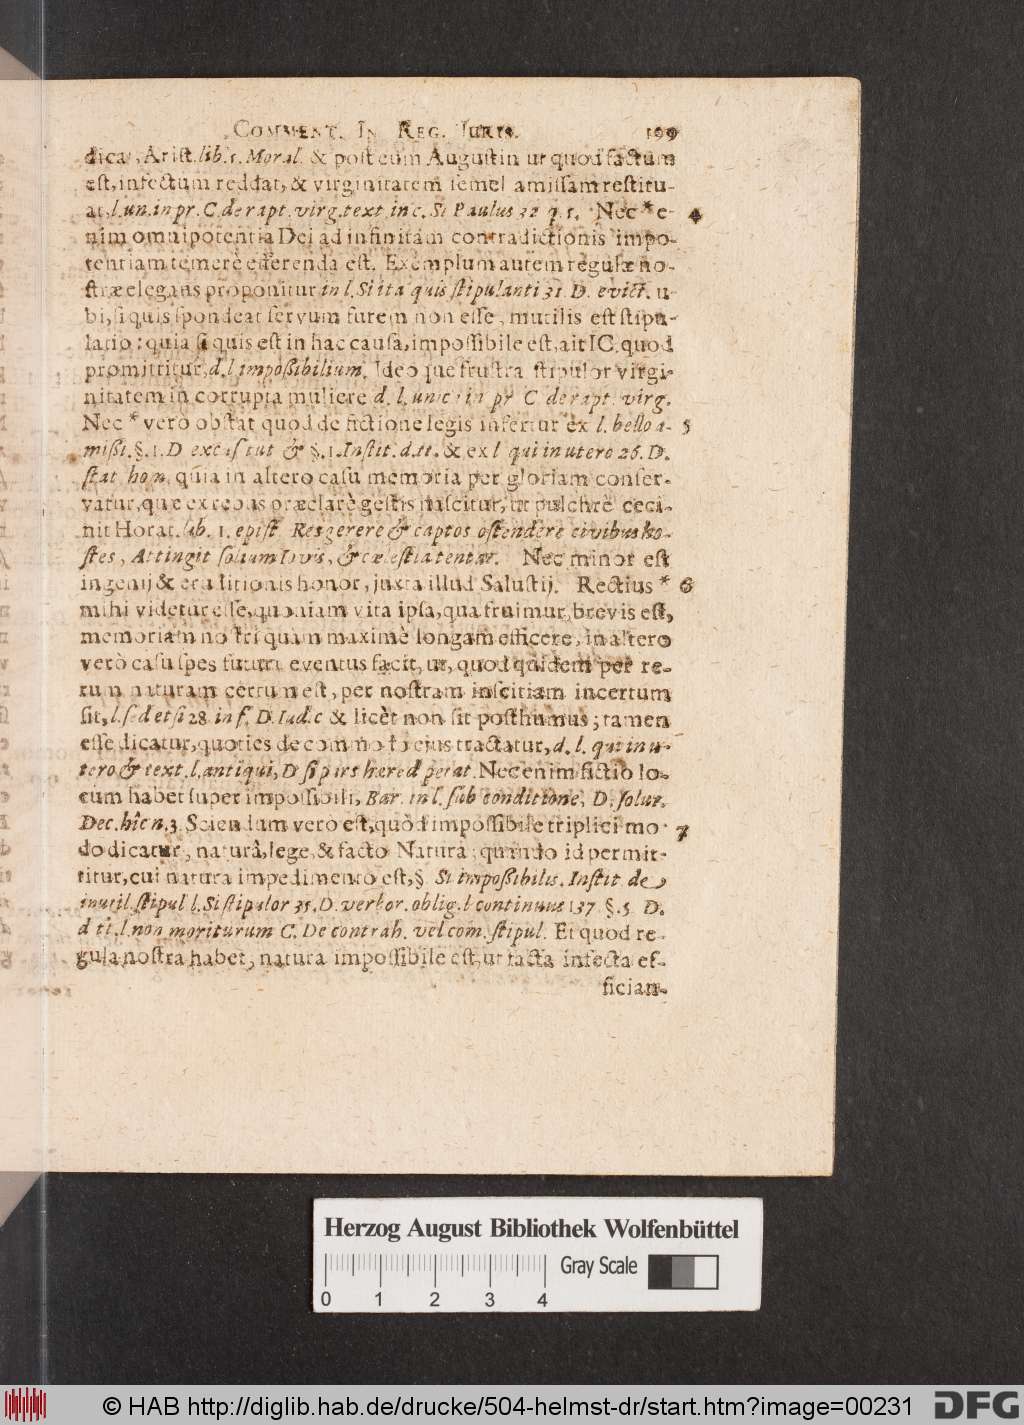 COMMENT. IN REG. IURIS. 199
dicat, Arist. lib. 1. Moral. & post eum Augustin ut quod factum
est, infectum reddat, & virginitatem semel amissam restitu-
at, l. un. in pr. C de rapt. virg. text in c. Si Paulus 32 q. 5. Nec * e- 4
nim omnipotentia Dei ad infinitam contradictionis impo-
tentiam temerè efferenda est. Exemplum autem regulæ no-
stræ elegans proponitur in l. Si ita quis stipulanti 31. D. evict. u-
bi, si quis spondeat servum furem non esse, inutilis est stipu-
latio: quia si quis est in hac causa, impossibile est, ait IC. quod
promittitur, d. l impoßibilium. Ideoque frustra stipulor virgi-
nitatem in corrupta muliere d. l. unic: in pr C. de rapt. virg.
Nec * verò obstat quod de fictione legis infertur ex l. bello a- 5
mißi. §. 1. D excusf tut & §. 1. Instit. d. tt. & ex l qui in utero 26. D.
stat hom. quia in altero casu memoria per gloriam conser-
vatur, quæ ex rebus præclarè gestis nascitur, ut pulchrè ceci-
nit Horat. lib. 1. epist. Res gerere & captos ostendere civibus ho-
stes, Attingit solium Iovis, & cælestia tentat. Nec minor est
ingenij & eruditionis honor, juxta illud Salustij. Rectius * 6
mihi videtur esse, quoniam vita ipsa, qua fruimur, brevis est,
memoriam nostri quam maximè longam efficere, in altero
verò casu spes futuri eventus facit, ut, quod quidem per re-
rum naturam certum est, per nostram inscitiam incertum
sit, l. sed etsi 28. in f. D. Iudic & licèt non sit posthumus; tamen
esse dicatur, quoties de commodo ejus tractatur, d. l. qui in u-
tero & text. l. antiqui, D si pars hæred petat. Nec enim fictio lo-
cum habet super impossibili, Bar. in l. sub conditione, D. solut.
Dec. hîc n. 3. Sciendum verò est, quòd impossibile triplici mo- 7
do dicatur, naturâ, lege, & facto Natura: quando id permit-
titur, cui natura impedimento est, §. Si impoßibilis. Instit de
inutil. stipul l. Si stipulor 35. D. verbor. oblig. l continuus 137 §. 5. D.
d ti. l. non moriturum C. De contrah. vel com. stipul. Et quod re-
gula nostra habet, natura impossibile est, ut facta infecta ef-
fician-
Herzog August Bibliothek Wolfenbüttel
Gray Scale
0 1 2 3 4
© HAB http://diglib.hab.de/drucke/504-helmst-dr/start.htm?image=00231 DFG